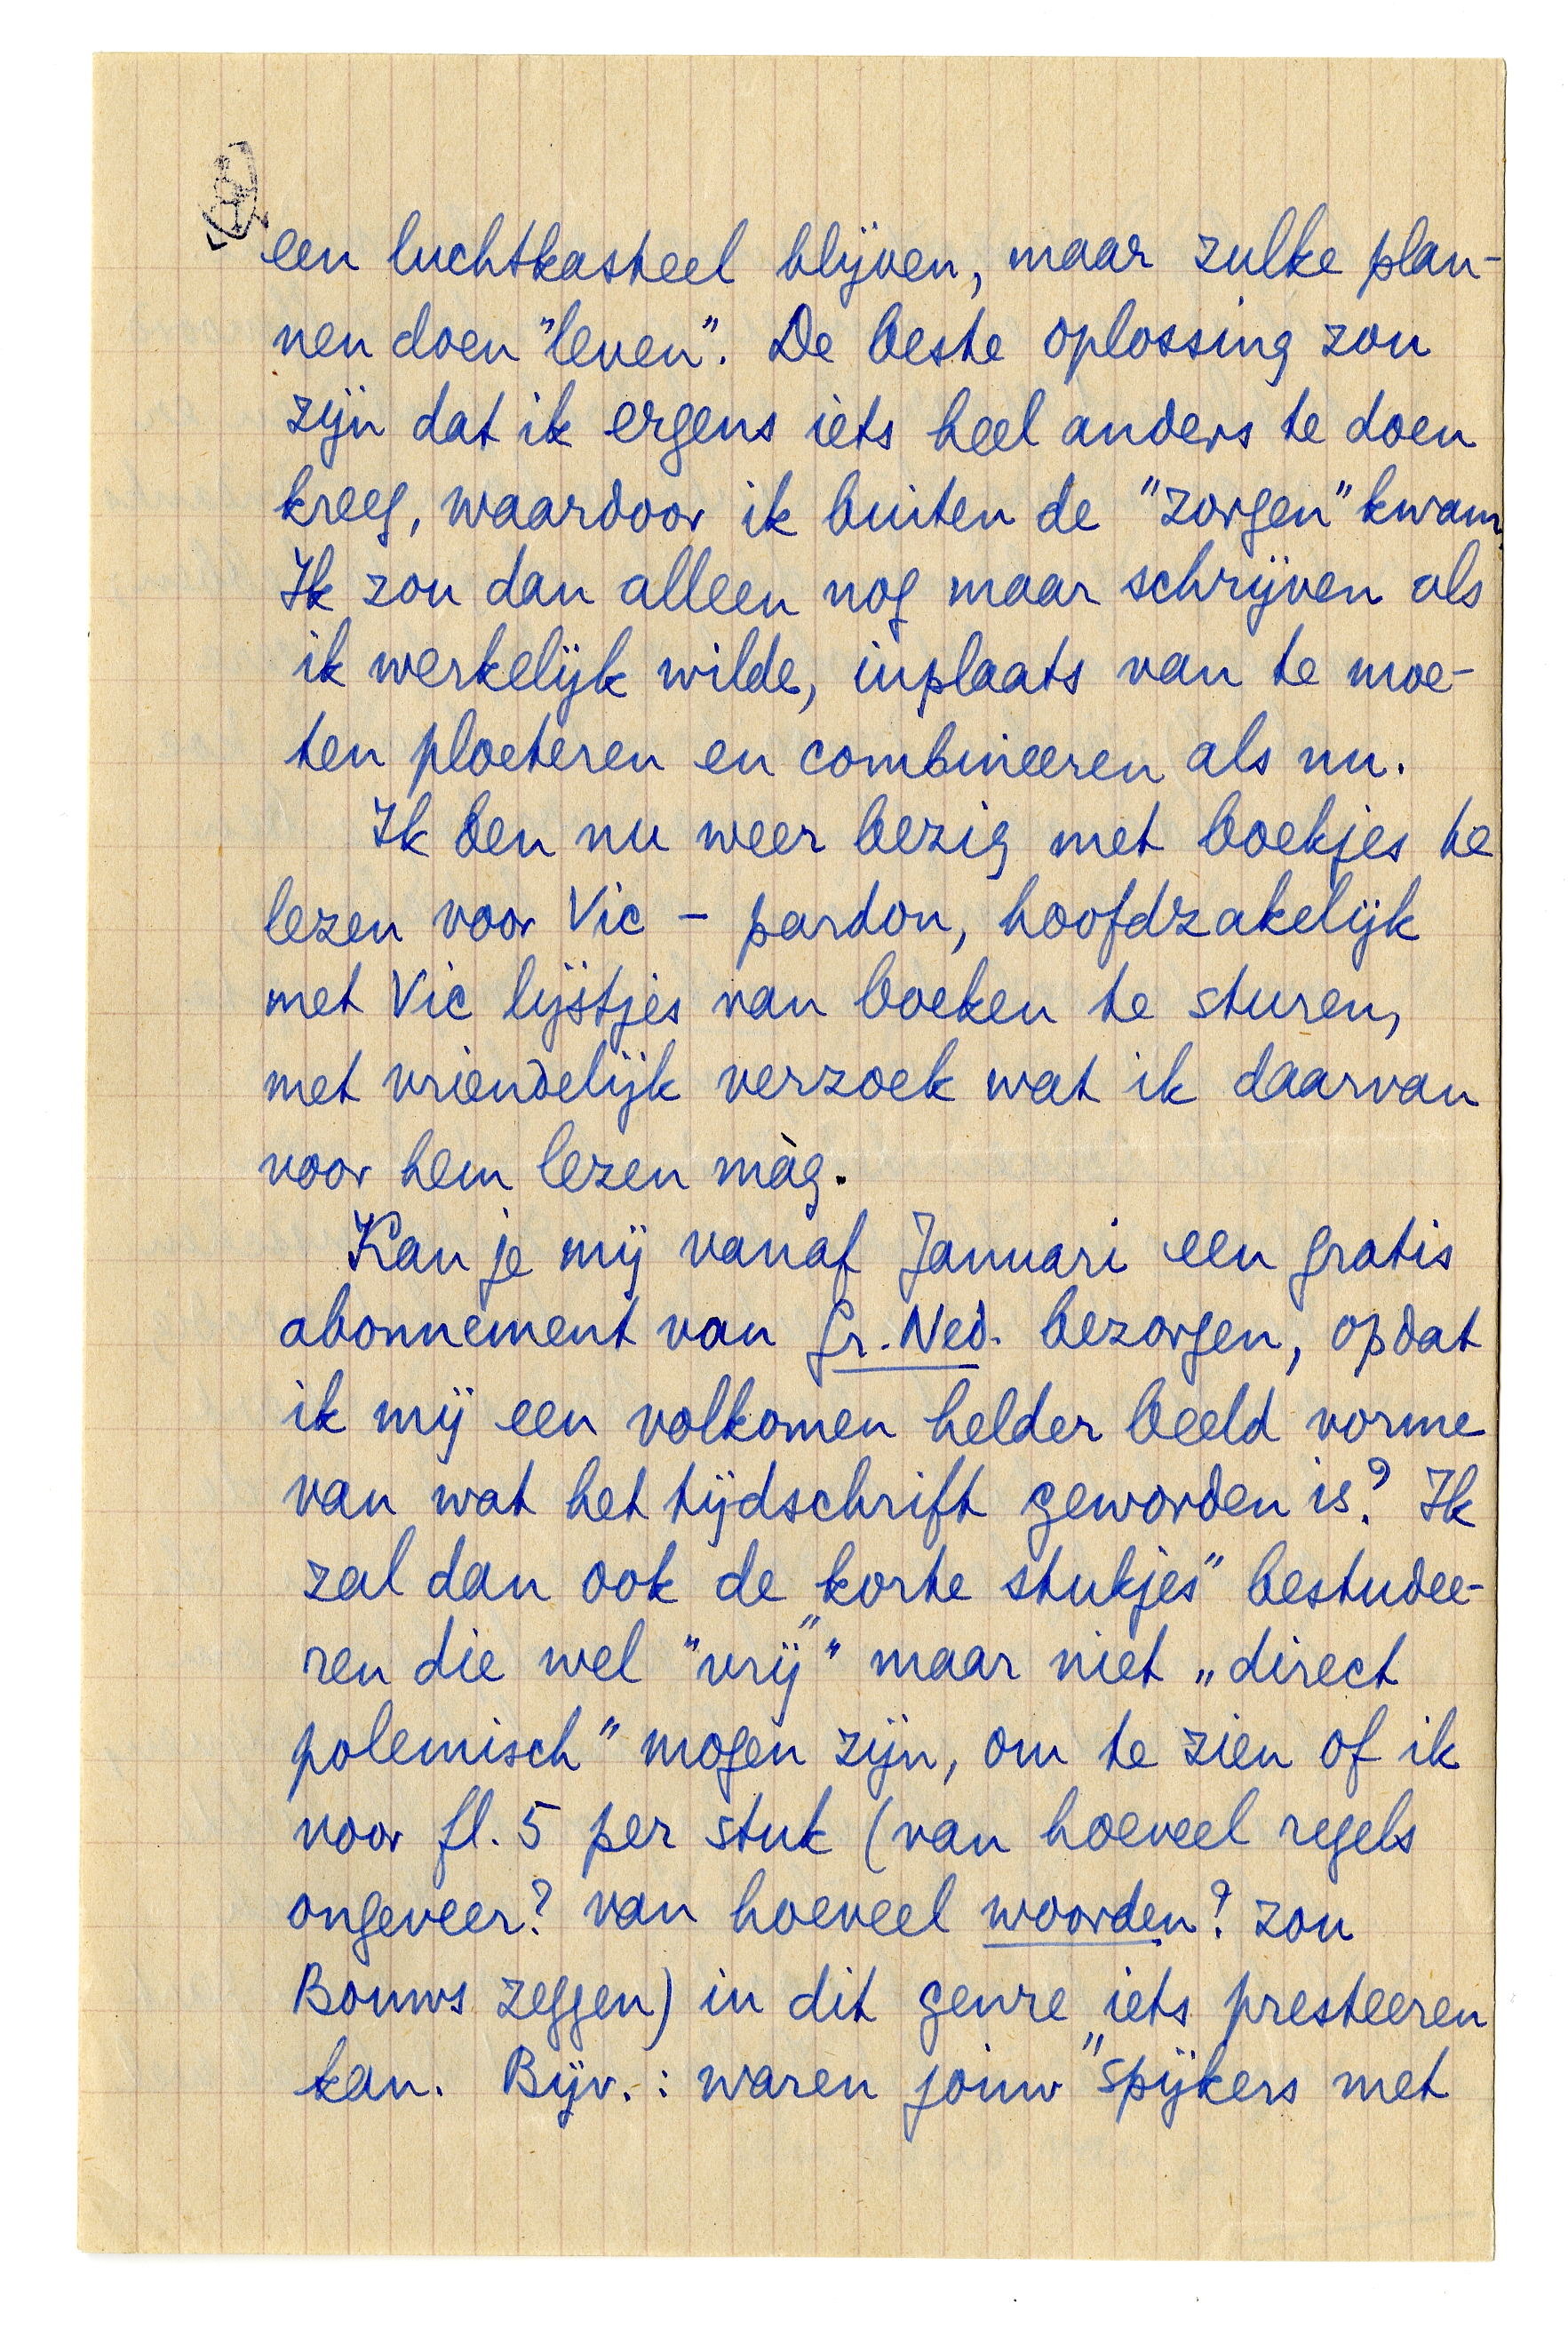 een luchtkasteel blijven, maar zulke plan-
nen doen "leven". De beste oplossing zou
zijn dat ik ergens iets heel anders te doen
kreeg, waardoor ik buiten de "zorgen" kwam.
Ik zou dan alleen nog maar schrijven als
ik werkelijk wilde, inplaats van te moe-
ten ploeteren en combineeren als nu.
Ik ben nu weer bezig met boekjes te
lezen voor Vic – pardon, hoofdzakelijk
met Vic lijstjes van boeken te sturen,
met vriendelijk verzoek wat ik daarvan
voor hem lezen màg.
Kan je mij vanaf Januari een gratis
abonnement van Gr. Ned. bezorgen, opdat
ik mij een volkomen helder beeld vorme
van wat het tijdschrift geworden is? Ik
zal dan ook de „korte stukjes" bestudee-
ren die wel "vrij" maar niet „direct
polemisch" mogen zijn, om te zien of ik
voor fl. 5 per stuk (van hoeveel regels
ongeveer? van hoeveel woorden? zou
Bouws zeggen) in dit genre iets presteeren
kan. Bijv.: waren jouw "spijkers met